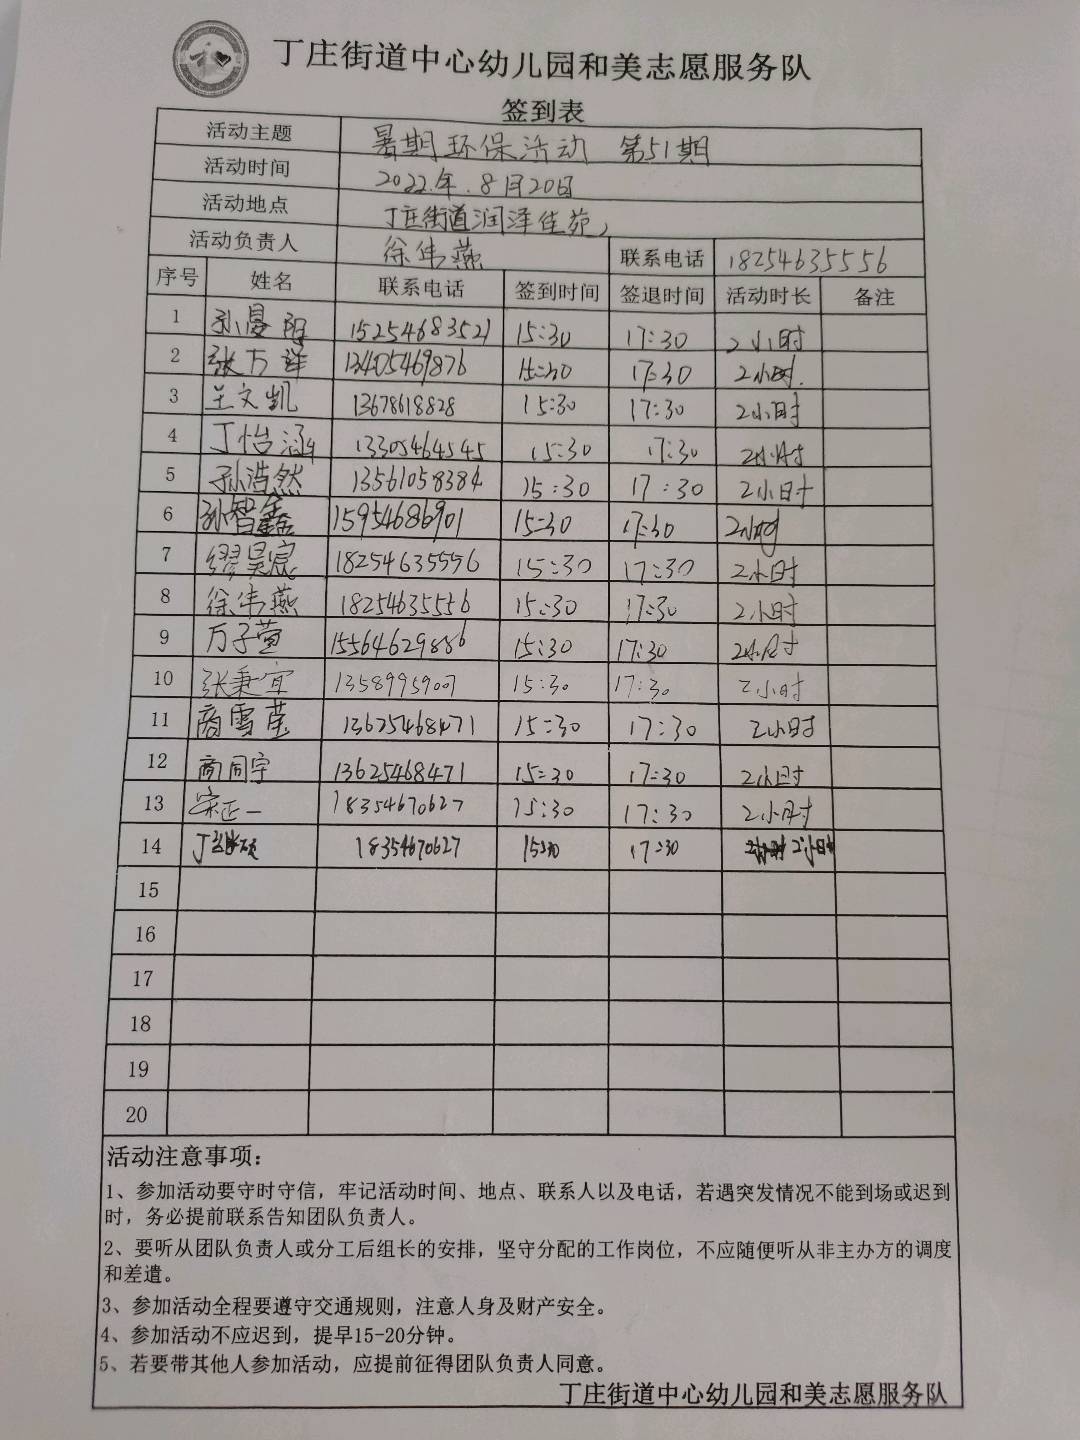 丁庄街道中心幼儿园和美志愿服务队
签到表
活动主题 暑期环保活动 第51期
活动时间 2022.年.8月20日
活动地点 丁庄街道润泽佳苑
活动负责人 徐伟燕 联系电话 18254635556
序号 姓名 联系电话 签到时间 签退时间 活动时长 备注
1 孙曼 15254683521 15:30 17:30 2小时
2 张万 13405469876 15:30 17:30 2小时.
3 王文凯 13678618828 15:30 17:30 2小时
4 丁怡涵 13305464545 15:30 17:30 2小时
5 孙浩然 13561058384 15:30 17:30 2小时
6 孙智鑫 15954686901 15:30 17:30 2小时
7 缪昊宸 18254635556 15:30 17:30 2小时
8 徐伟燕 18254635556 15:30 17:30 2小时
9 万子萱 15564629886 15:30 17:30 2小时
10 张秉宜 13589959007 15:30 17:30 2小时
11 商雪莹 13625468471 15:30 17:30 2小时
12 商同宇 13625468471 15:30 17:30 2小时
13 宋正一 18354670627 15:30 17:30 2小时
14 丁 硕 18354670627 15:30 17:30 2小时
15
16
17
18
19
20
活动注意事项：
1、参加活动要守时守信，牢记活动时间、地点、联系人以及电话，若遇突发情况不能到场或迟到
时，务必提前联系告知团队负责人。
2、要听从团队负责人或分工后组长的安排，坚守分配的工作岗位，不应随便听从非主办方的调度
和差遣。
3、参加活动全程要遵守交通规则，注意人身及财产安全。
4、参加活动不应迟到，提早15-20分钟。
5、若要带其他人参加活动，应提前征得团队负责人同意。
丁庄街道中心幼儿园和美志愿服务队